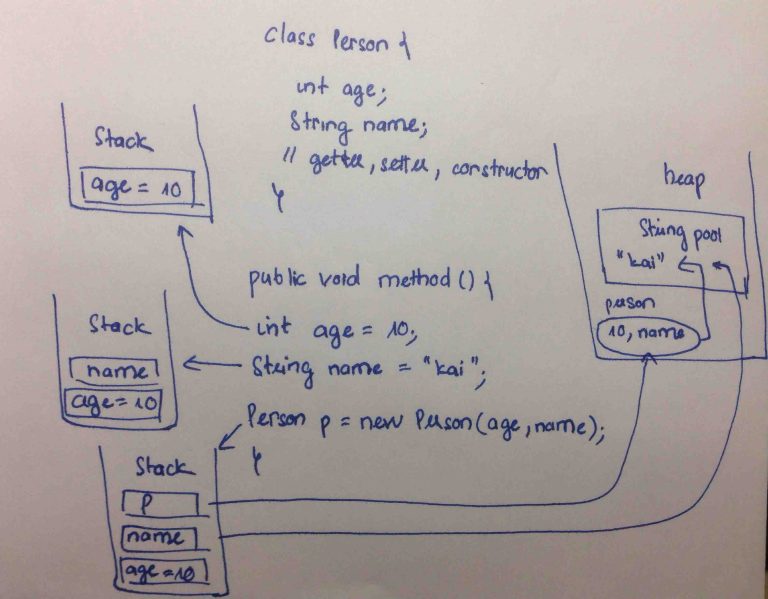 class Person {
int age;
String name;
// getter, setter, constructor
}
Stack
age = 10
heap
String pool
"kai"
person
10, name
public void method () {
int age = 10;
String name = "kai";
Person p = new Person(age, name);
}
Stack
name
age = 10
Stack
p
name
age = 10